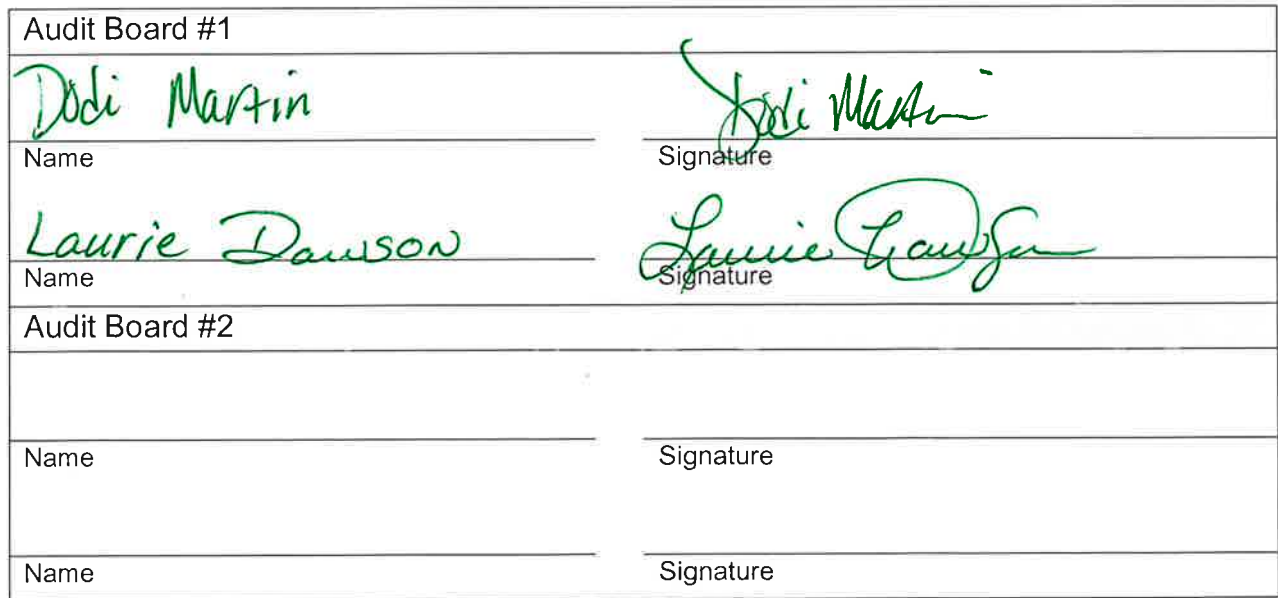 Audit Board #1
Dodi Martin Dodi Martin
Name Signature
Laurie Dawson Laurie Dawson
Name Signature
Audit Board #2
Name Signature
Name Signature